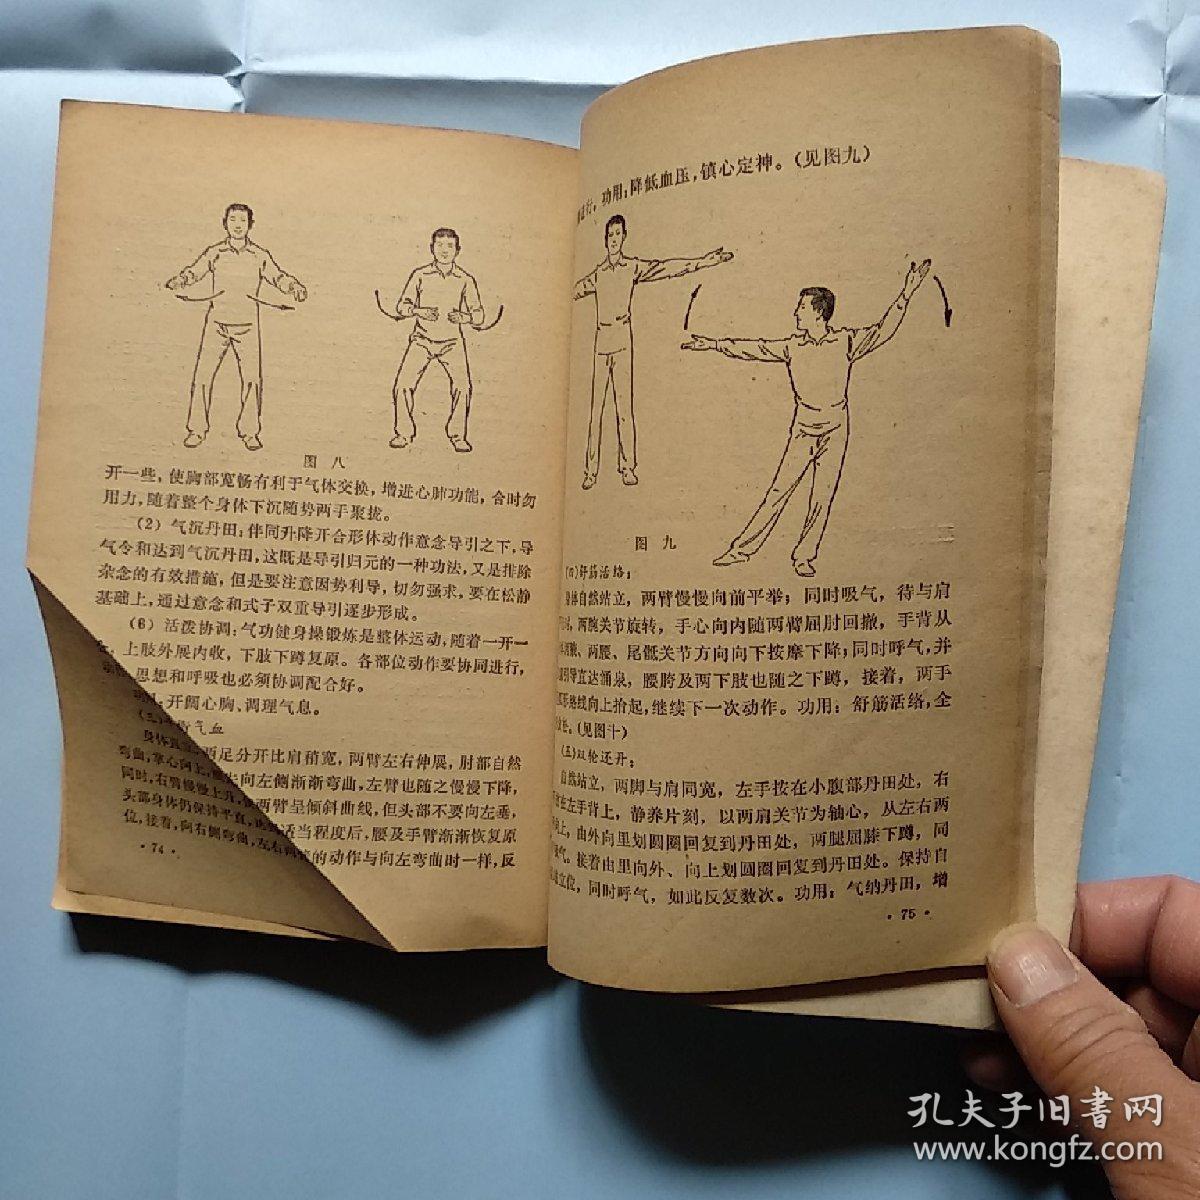 图 八
开一些，使胸部宽畅有利于气体交换，增进心肺功能，合时勿
用力，随着整个身体下沉随势两手聚拢。
（2）气沉丹田：伴同升降开合形体动作意念导引之下，导
气令和达到气沉丹田，这既是导引归元的一种功法，又是排除
杂念的有效措施，但是要注意因势利导，切勿强求，要在松静
基础上，通过意念和式子双重导引逐步形成。
（6）活泼协调：气功健身操锻炼是整体运动，随着一开一
，上肢外展内收，下肢下蹲复原。各部位动作要协同进行，
思想和呼吸也必须协调配合好。
开阔心胸、调理气息。
（三） 气血
身体直 两足分开比肩稍宽，两臂左右伸展，肘部自然
弯曲，掌心向上， 先向左侧渐渐弯曲，左臂也随之慢慢下降，
同时，右臂慢慢上升， 两臂呈倾斜曲线，但头部不要向左垂，
头部身体仍保持平直， 适当程度后，腰及手臂渐渐恢复原
位，接着，向右侧弯曲，左右 的动作与向左弯曲时一样，反
·74·
进行，功用：降低血压，镇心定神。（见图九）
图 九
（四）舒筋活络：
身体自然站立，两臂慢慢向前平举；同时吸气，待与肩
时，两腕关节旋转，手心向内随两臂屈肘回撤，手背从
腋、两腰、尾骶关节方向向下按摩下降；同时呼气，并
引导直达涌泉，腰胯及两下肢也随之下蹲，接着，两手
弧形路线向上抬起，继续下一次动作。功用：舒筋活络，全
（见图十）
（五）双轮还丹：
自然站立，两脚与肩同宽，左手按在小腹部丹田处，右
在左手背上，静养片刻，以两肩关节为轴心，从左右两
向上，由外向里划圆圈回复到丹田处，两腿屈膝下蹲，同
吸气。接着由里向外、向上划圆圈回复到丹田处。保持自
立位，同时呼气，如此反复数次。功用：气纳丹田，增
·75·
孔夫子旧书网
www.kongfz.com